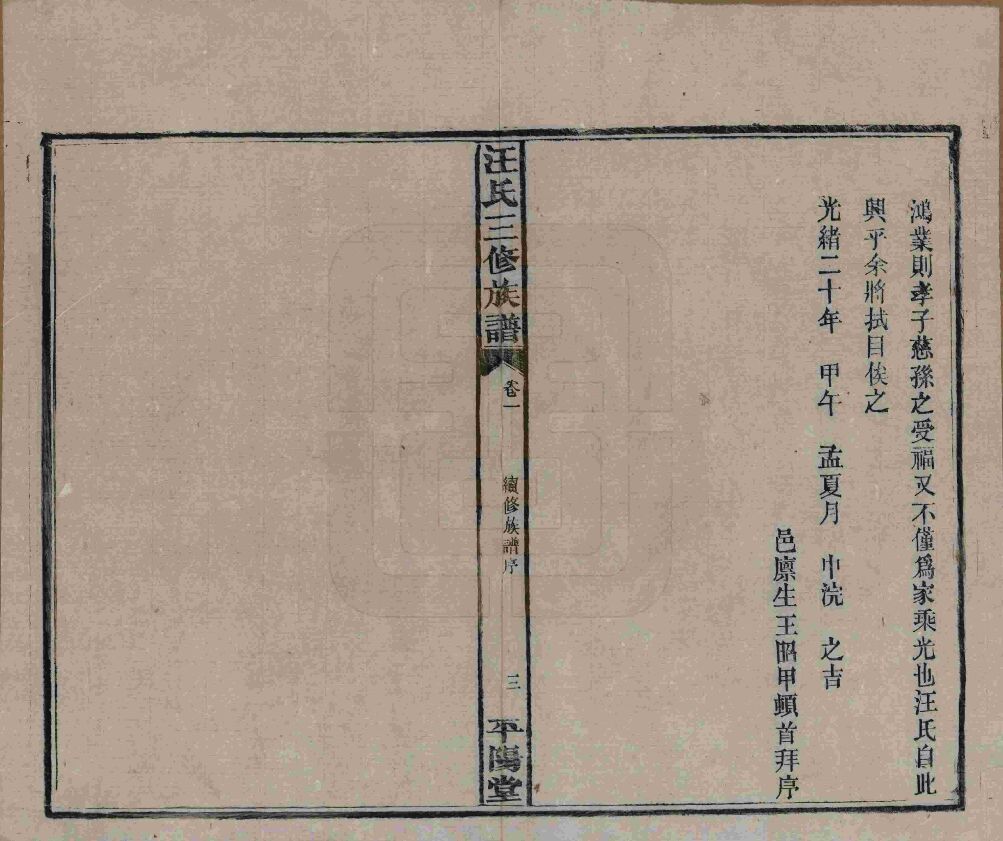 鴻業則孝子慈孫之受福又不僅爲家乘光也汪氏自此
興乎余將拭目俟之
光緒二十年 甲午 孟夏月 中浣 之吉
邑廪生王昭甲頓首拜序
汪氏三修族譜 卷一 續修族譜序 三 平陽堂